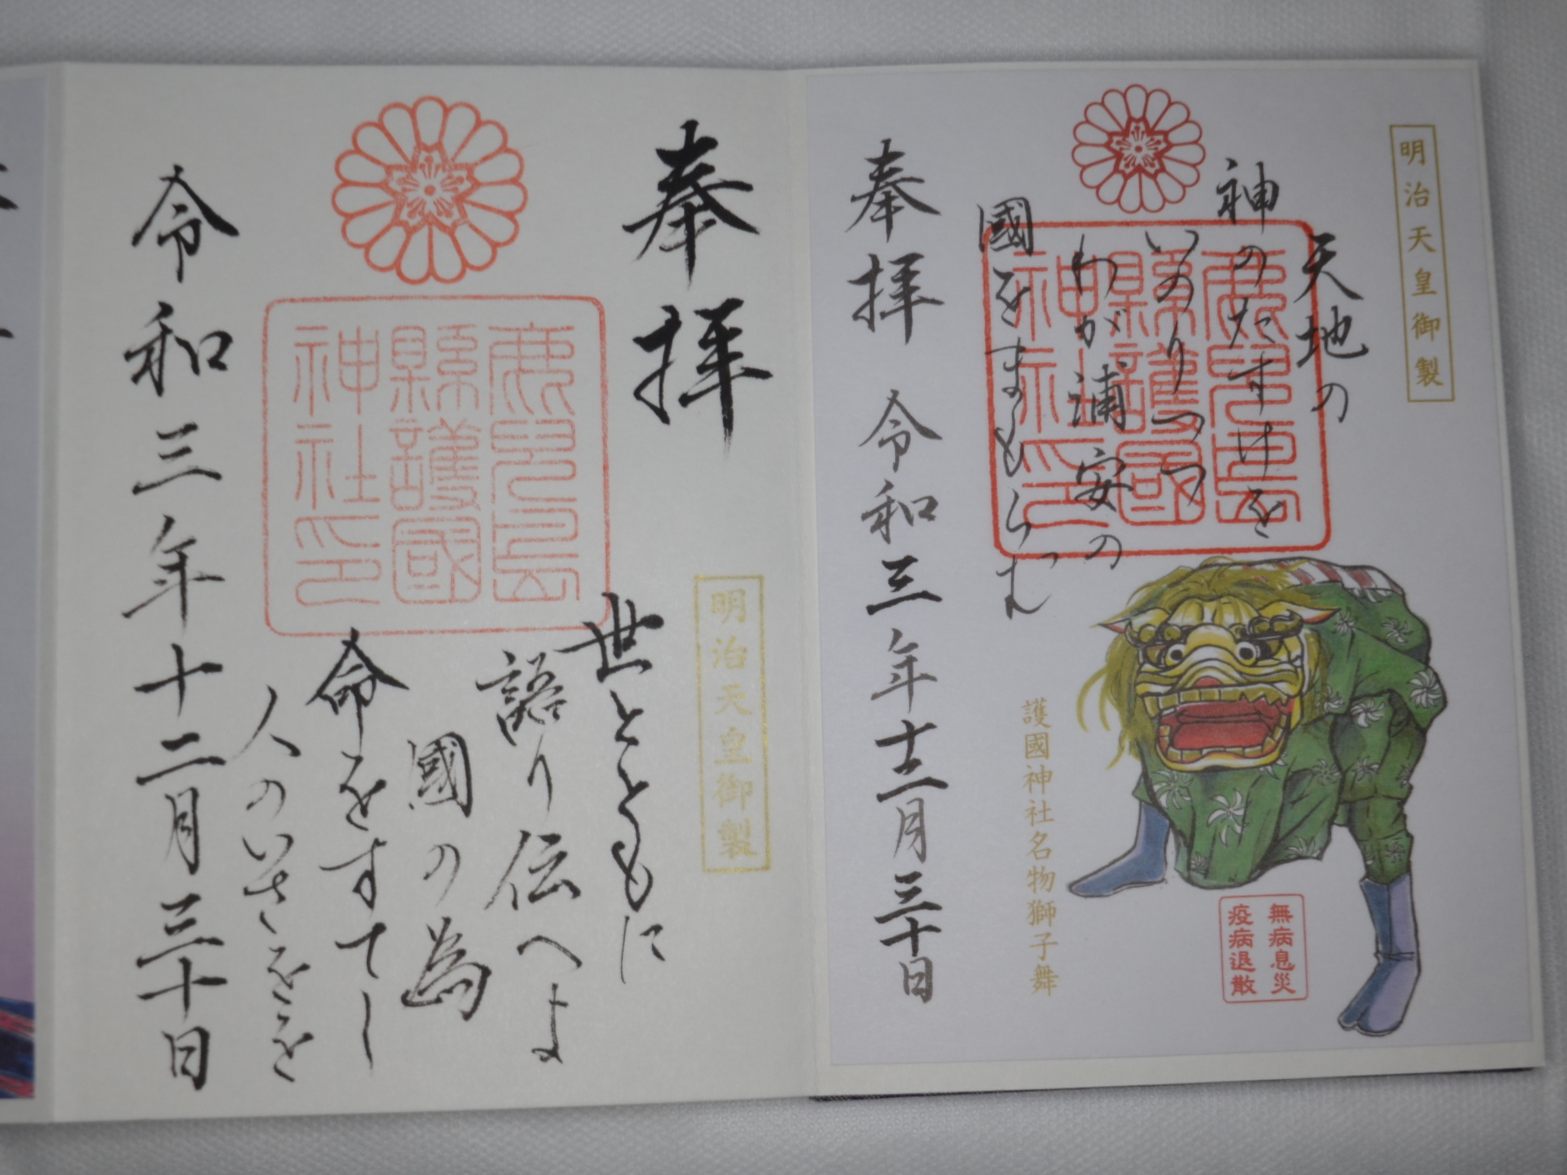 明治天皇御製
天地の
神のたすけを
いのりつつ
わが浦安の
國をまもらむ
鹿児島
縣護國
神社印
奉拝 令和三年十二月三十日
護國神社名物獅子舞
無病息災
疫病退散
奉拝
鹿児島
縣護國
神社印
明治天皇御製
世とともに
語り伝へよ
國の為
命をすてし
人のいさをを
令和三年十二月三十日